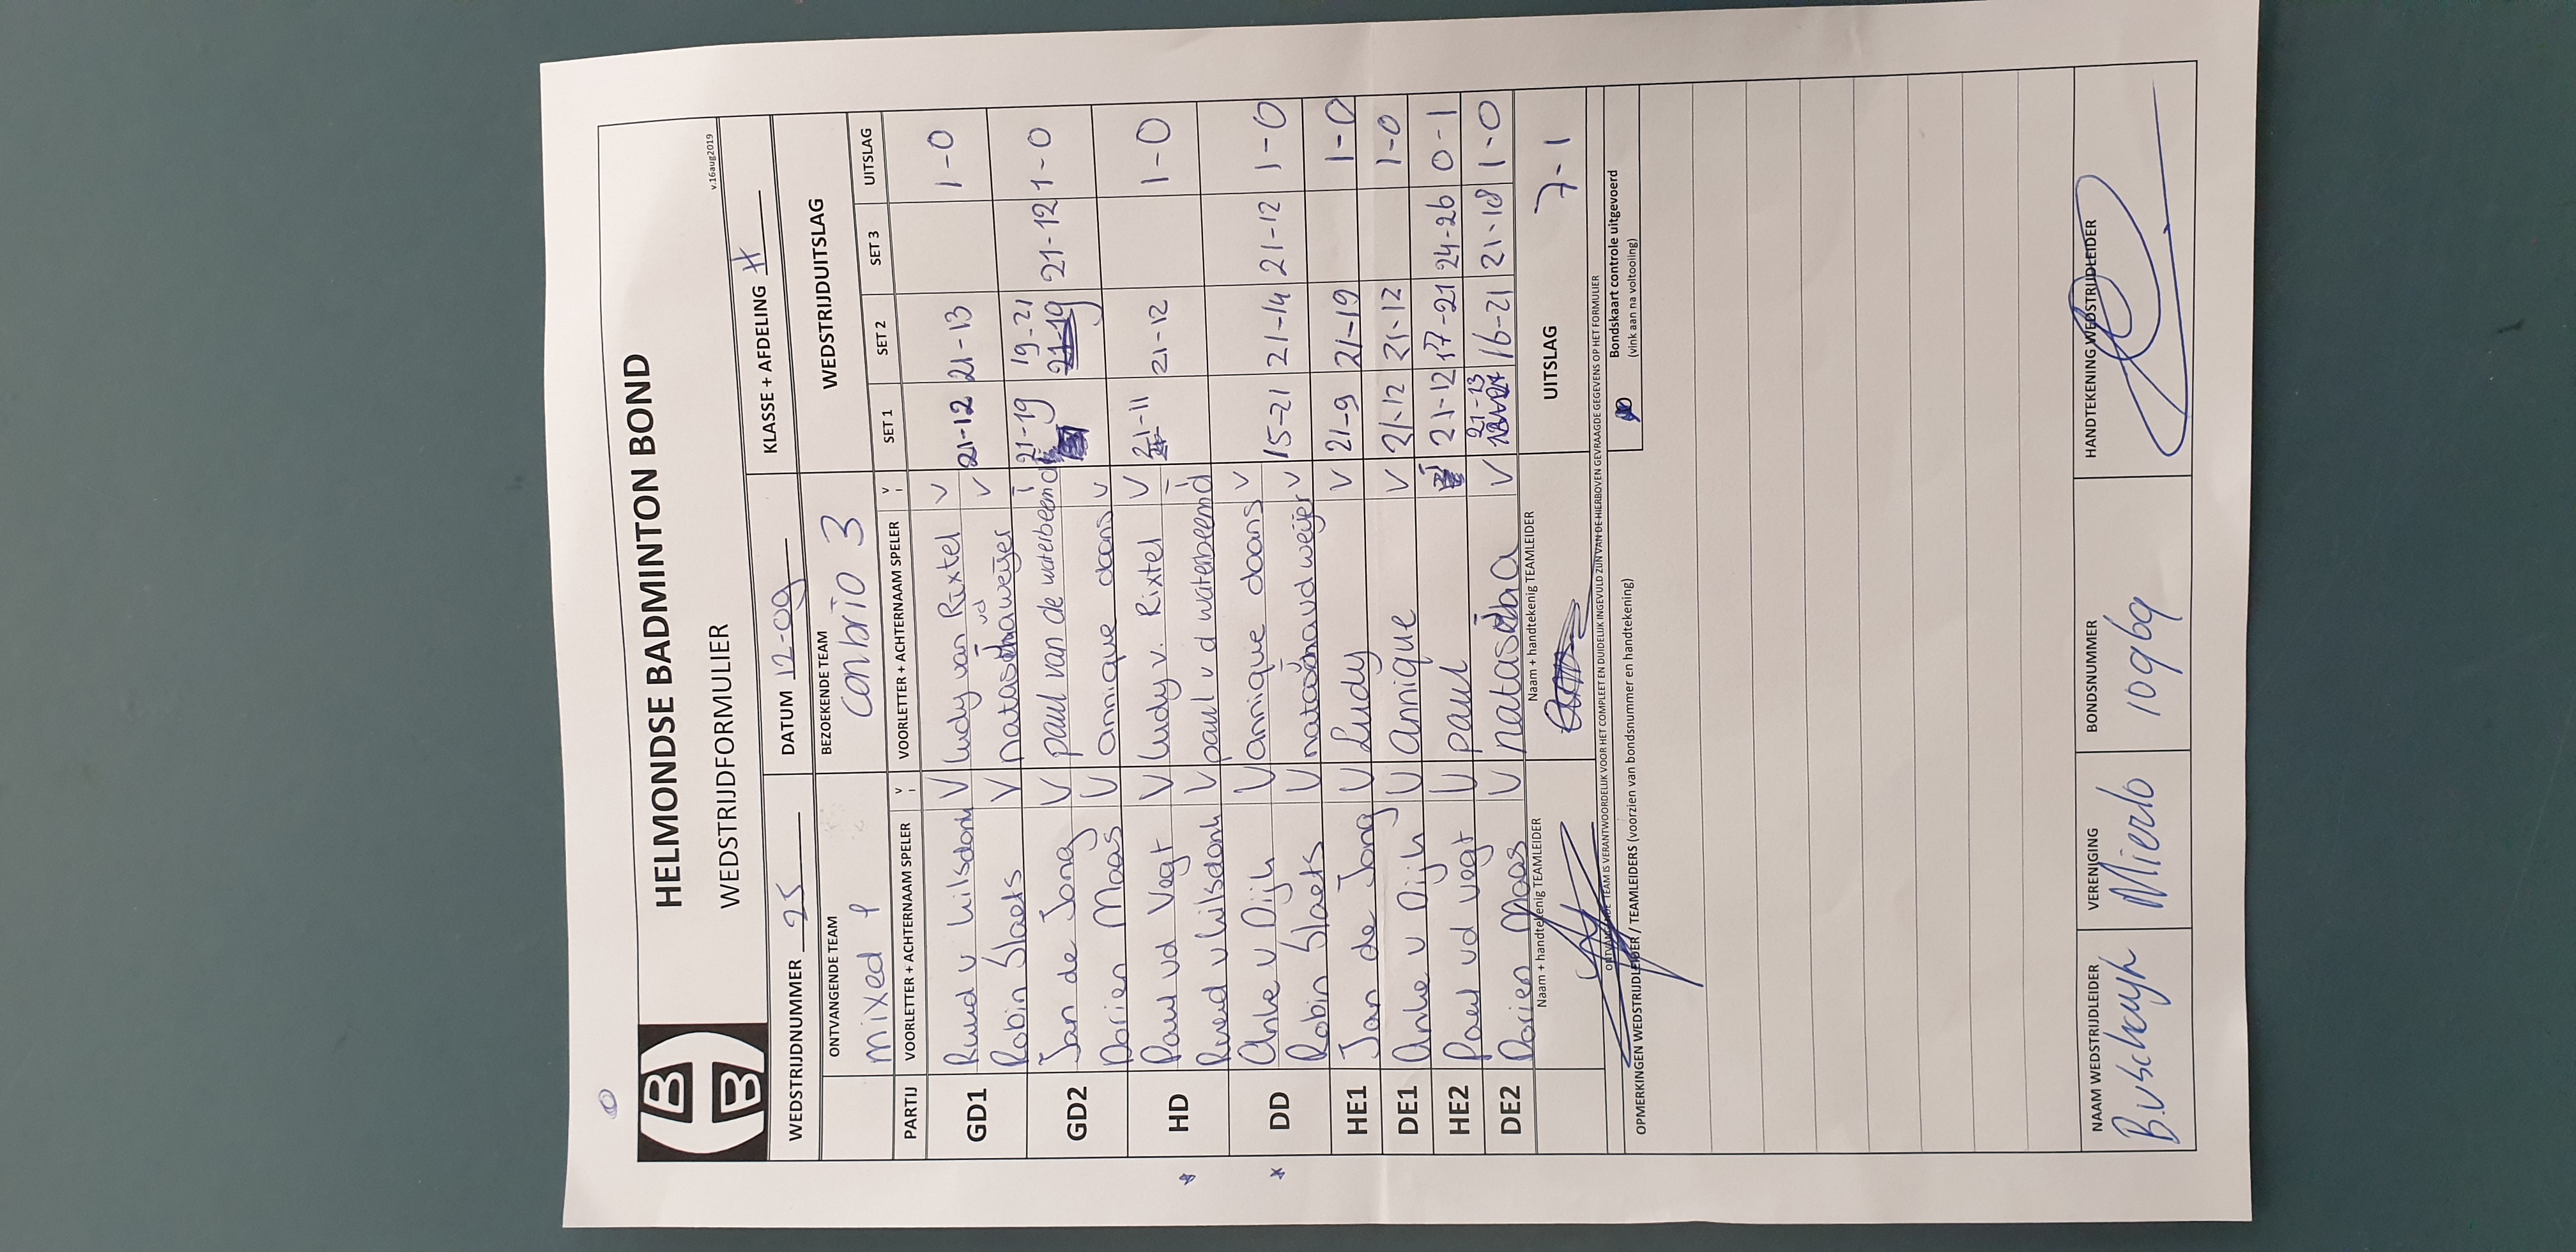 HELMONDSE BADMINTON BOND
WEDSTRIJDFORMULIER
v.16aug2019
WEDSTRIJDNUMMER 25 DATUM 12-09 KLASSE + AFDELING H
ONTVANGENDE TEAM BEZOEKENDE TEAM WEDSTRIJDUITSLAG
mixed 1 Conbrio 3
PARTIJ VOORLETTER + ACHTERNAAM SPELER V I VOORLETTER + ACHTERNAAM SPELER V I SET 1 SET 2 SET 3 UITSLAG
GD1 Ruud v Hilsdonk V Ludy van Rixtel V 21-12 21-13 1-0
Robin Slaets V natascha vd weijer V
GD2 Jan de Jong V paul van de waterbeemd I 21-19 19-21 21-12 1-0
Dorien Maas V annique daans V
HD Paul vd Vegt V Ludy v. Rixtel V 21-11 21-12 1-0
Ruud v Hilsdonk V paul v d waterbeemd I
DD Anke v Dijk V annique daans V 15-21 21-14 21-12 1-0
Robin Slaets V natascha vd weijer V
HE1 Jan de Jong V Ludy V 21-9 21-19 1-0
DE1 Anke v Dijk V annique V 21-12 21-12 1-0
HE2 Paul vd Vegt V paul I 21-12 17-21 24-26 0-1
DE2 Dorien Maas V natascha V 21-13 16-21 21-18 1-0
Naam + handtekenig TEAMLEIDER Naam + handtekenig TEAMLEIDER UITSLAG 7-1
ONTVANGENDE TEAM IS VERANTWOORDELIJK VOOR HET COMPLEET EN DUIDELIJK INGEVULD ZIJN VAN DE HIERBOVEN GEVRAAGDE GEGEVENS OP HET FORMULIER
OPMERKINGEN WEDSTRIJDLEIDER / TEAMLEIDERS (voorzien van bondsnummer en handtekening)
Bondskaart controle uitgevoerd
(vink aan na voltooling)
NAAM WEDSTRIJDLEIDER VERENIGING BONDSNUMMER HANDTEKENING WEDSTRIJDLEIDER
B.v Schayk Mierlo 10969